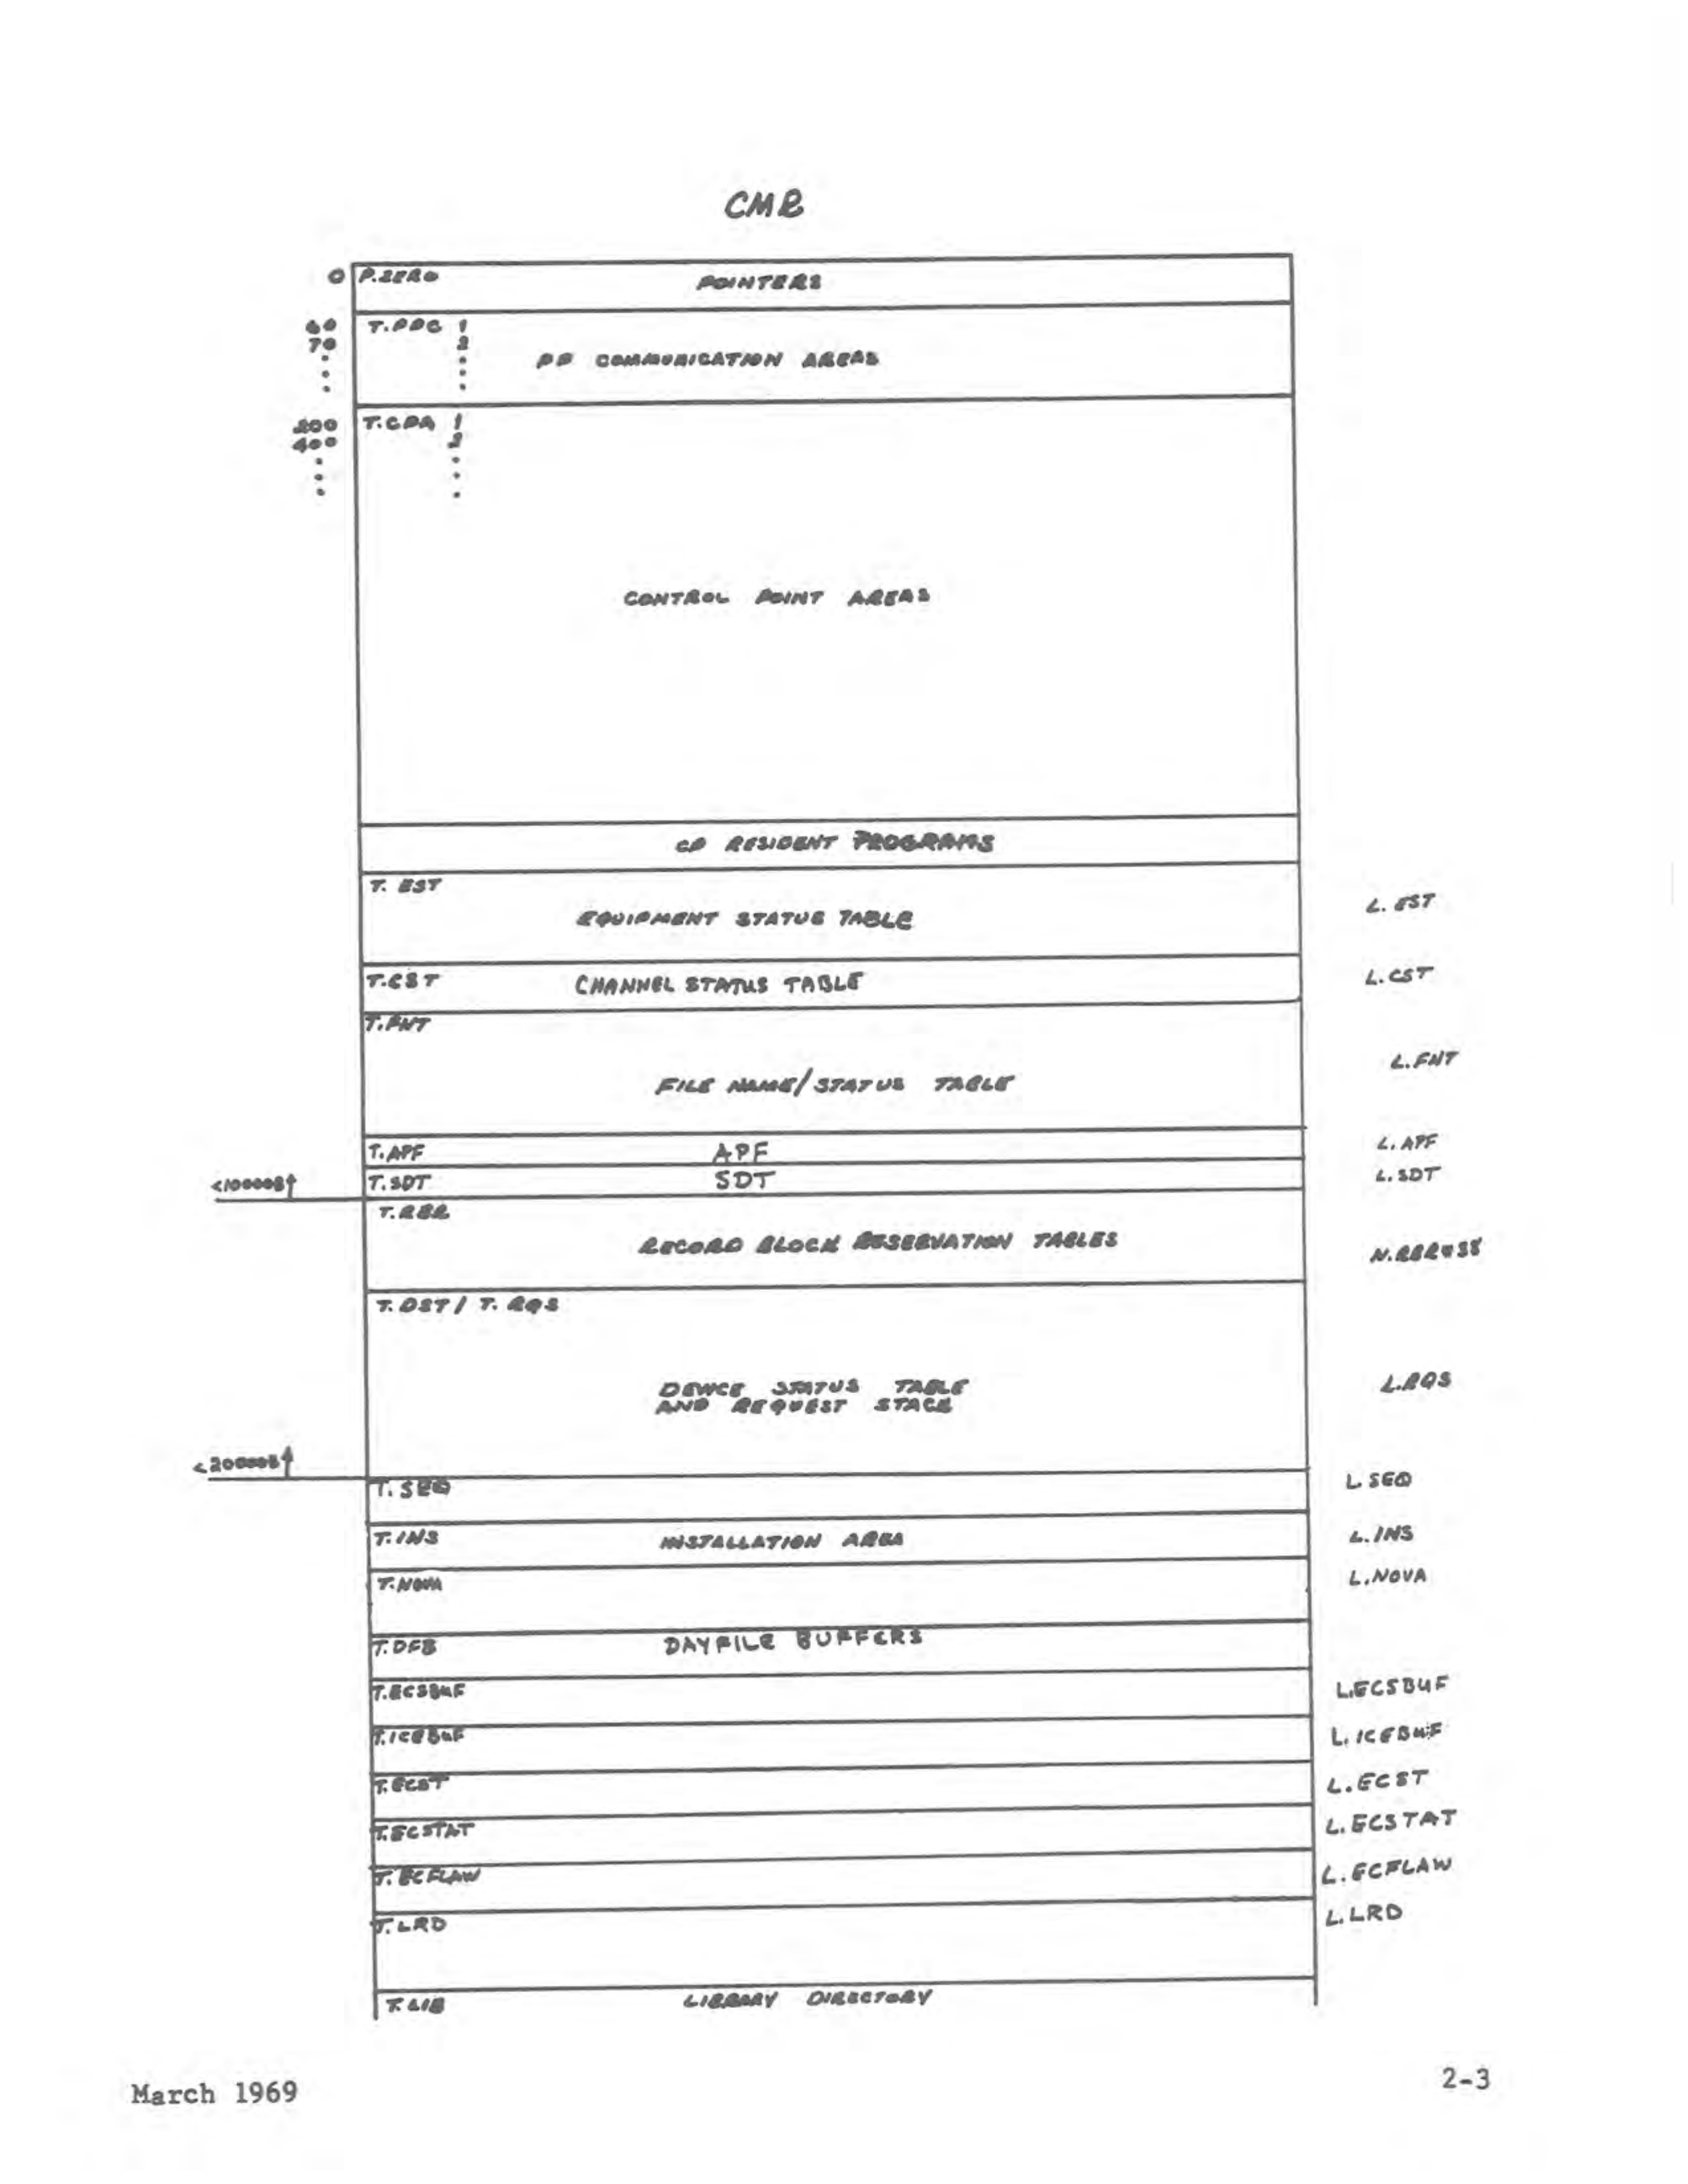 CMR
0 P.ZERO POINTERS
60 T.PPC 1
70 2
PP COMMUNICATION AREAS
200 T.CPA 1
400 2
CONTROL POINT AREAS
CP RESIDENT PROGRAMS
T.EST
EQUIPMENT STATUS TABLE L.EST
T.CST CHANNEL STATUS TABLE L.CST
T.FNT
FILE NAME/STATUS TABLE L.FNT
T.APF APF L.APF
<10000B↑ T.SDT SDT L.SDT
T.RBR
RECORD BLOCK RESERVATION TABLES N.RBR*38
T.DST / T.RQS
DEVICE STATUS TABLE L.RQS
AND REQUEST STACK
<20000B↑
T.SEQ L.SEQ
T.INS INSTALLATION AREA L.INS
T.NOVA L.NOVA
T.DFB DAYFILE BUFFERS
T.ECSBUF L.ECSBUF
T.ICEBUF L.ICEBUF
T.ECST L.ECST
T.ECSTAT L.ECSTAT
T.ECFLAW L.ECFLAW
T.LRD L.LRD
T.LIB LIBRARY DIRECTORY
March 1969 2-3